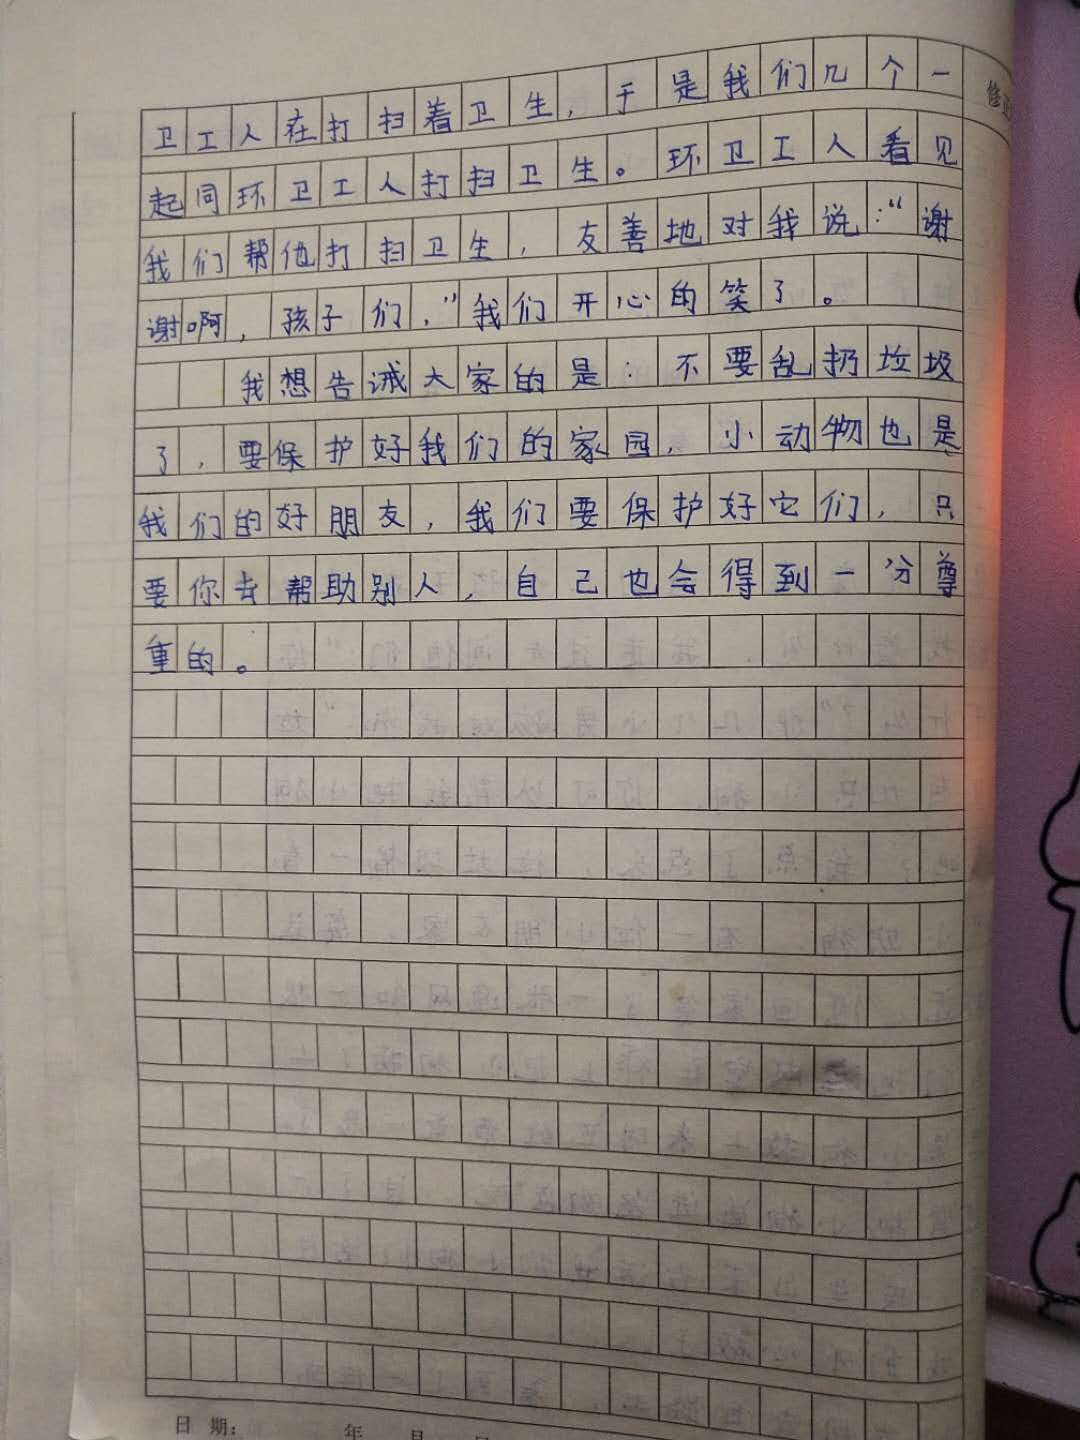 卫工人在打扫着卫生，于是我们几个一
起同环卫工人打扫卫生。环卫工人看见
我们帮他打扫卫生，友善地对我说：“谢
谢啊，孩子们，”我们开心的笑了。
我想告诫大家的是：不要乱扔垃圾
了，要保护好我们的家园，小动物也是
我们的好朋友，我们要保护好它们，只
要你去帮助别人，自己也会得到一分尊
重的。
日期： 年 月 日